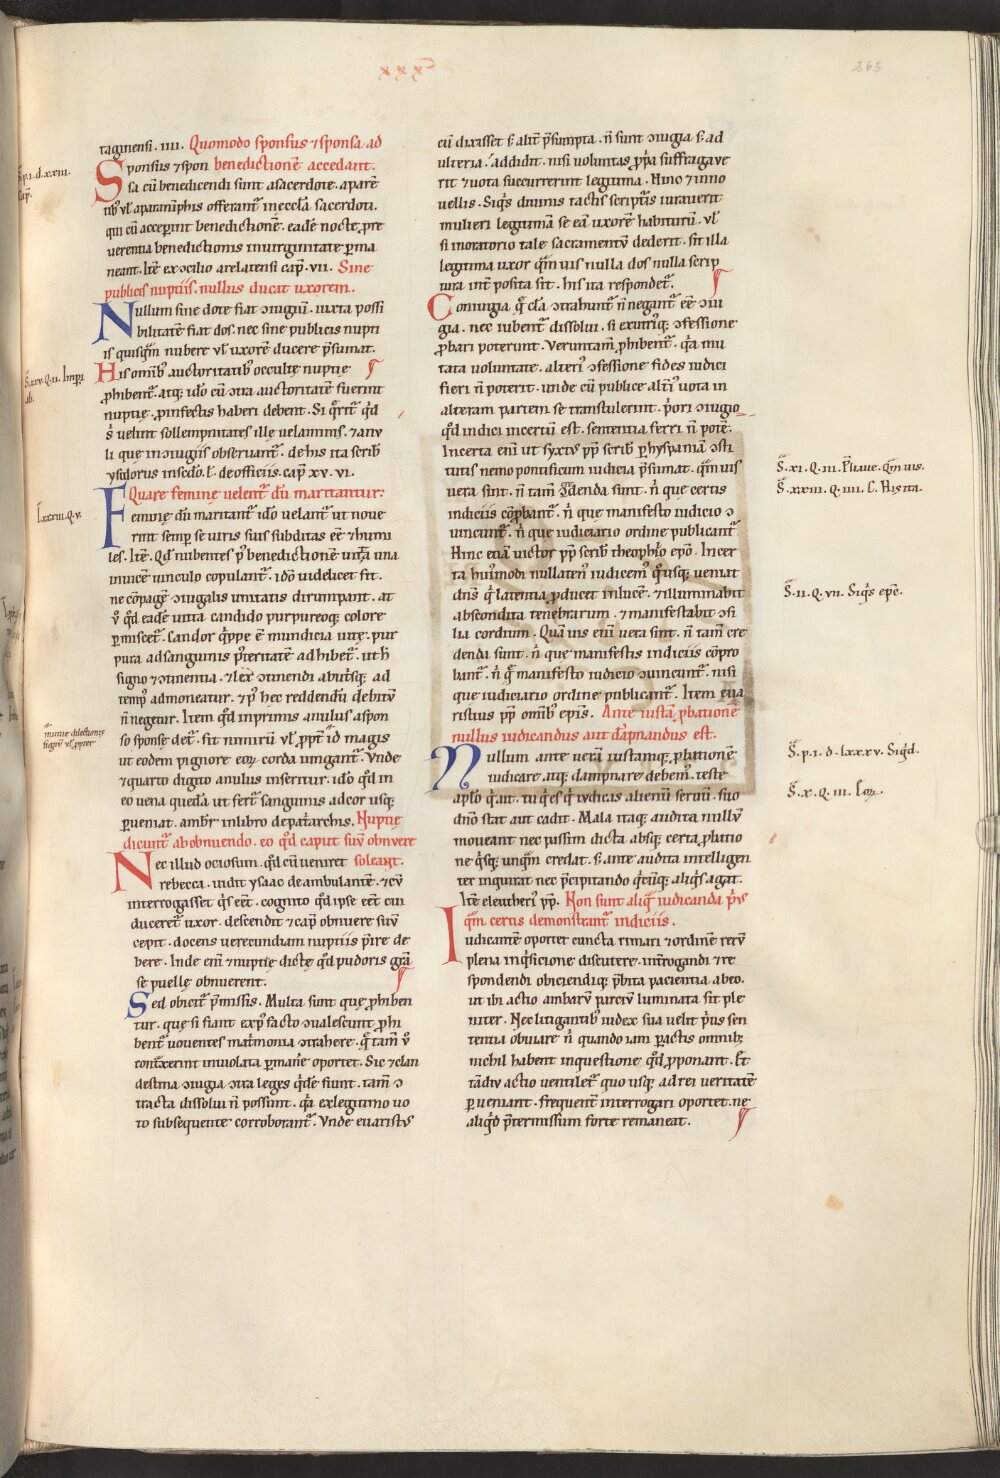 xxx
263
taginensi. iiii. Quomodo sponsus ⁊ sponsa ad
Sponsus ⁊ spon benedictionē accedant.
sa cū benedicendi sunt a sacerdote. a parē
tib; vl̓ a paranīphis offerant̄ in ecclā sacerdoti.
qui cū acceperint benedictionē. eadē nocte ꝓpt̄ re
uerentia benedictionis in uirginitate p̄ma
neant. Itē ex ↄcilio arelatensi cap̄. vii. Sine
publicis nuptiis. nullus ducat uxorem.
Nullum sine dote fiat ↄiugiū. iuxta possi
bilitatē fiat dos. nec sine publicis nupti
is quisq̄m nubere vl̓ uxorē ducere p̄sumat.
His omīb; auctoritatib; occultę nuptię
ꝓhibent̄. atq; ido cū ↄtra auctoritatē fuerint
nuptię. ꝓ infectis haberi debent. Si q̄rit̄ q̄d
s̄ uelint sollempnitates illę uelaminis. ⁊ anu
li que in ↄiugiis obseruant̄. de his ita scrib̄
ysidorus in sc̄do. l. de officiis. cap̄ xv. vi.
Quare femine uelent̄ dū maritantur:
Feminę dū maritant̄ ido uelant̄ ut noue
rint semp̄ se uiris suis subditas eē ⁊ humi
les. Itē. Qd̄ nubentes p̓ benedictionē uitta una
inuicē uinculo copulant̄. ido uidelicet fit.
ne cōpagē ↄiugalis unitatis dirumpant. at
v̓ q̄d eadē uitta candido purpureoq; colore
p̄miscet̄. Candor q̄ppe ē mundicia uitę. pur
pura ad sanguinis p̄teritatē adhibet̄. ut h̄
signo ⁊ ↄtinentia. ⁊ lex ↄtinendi ab utisq; ad
temp̓ admoneatur. ⁊ p̓ hec reddendū debitū
n̄ negetur. Item q̄d inprimis anulus a spon
so sponse det̄. fit nimirū vl̓ ꝓpt̄ id magis
ut eodem pignore eoꝝ corda iungant̄. Vnde
⁊ quarto digito anulus inseritur. ido q̄d in
eo uena quedā ut fert̄ sanguinis ad cor usq;
p̄ueniat. ambr̄ in libro de pat̄archis. Nuptię
dicunt̄ ab obnuendo. eo q̄d caput suū obnuere
Nec illud ociosum. q̄d cū ueniret soleant.
rebecca. uidit ysaac deambulantē. ⁊ cū
interrogasset q̄s eēt. cognito q̄d ipse eēt cui
duceret̄ uxor. descendit ⁊ cap̄ obnuere suū
cepit. docens uerecundiam nuptiis p̄ire de
bere. Inde eni ⁊ nuptię dictę q̄d pudoris grā
se puellę obnuerent.
Sed obicit̄ p̄missis. Multa sunt quę ꝓhiben
tur. que si fiant ex p̓ facto ↄualescunt. ꝓhi
bent̄ uouentes mat̄monia ↄtrahere. q̄ tam̄ v̓
ↄtxerint inuiolata p̄manē oportet. Sic ⁊ clan
destina ↄiugia ↄtra leges q̄dē fiunt. tam̄ ↄ
tracta dissolui n̄ possunt. q̄a ex legitimo uo
to subsequente corroborant̄. Vnde euarist;
cū dixisset s̄ alit̄ p̄sumpta. n̄ sunt ↄiugia s̄ ad
ulteria. addidit. nisi uoluntas ꝓp̄a suffragaue
rit ⁊ uota succurrerint legitima. Hinc ⁊ in no
uellis. Siq̄s diuinis tactis scriptis iurauerit
mulieri legitimā se eā uxorē habiturū. vl̓
si in oratorio tale sacramentū dederit. sit illa
legitima uxor q̄muis nulla dos nulla scrip
tura int̄ posita sit. his ita respondet̄.
Coniugia q̄ clā ↄtrahunt̄ n̄ negant̄ eē ↄiu
gia. nec iubent̄ dissolui. si ex utriq; ↄfessione
ꝓbari poterunt. Veruntam̄ ꝓhibent̄. q̄a mu
tata uoluntate. alteri̓ ↄfessione fides iudici
fieri n̄ poterit. unde cū publice alt̄i̓ uota in
alteram partem se transtulerint. p̄ori ↄiugio
q̄d iudici incertū est. sententia ferri n̄ potē.
Incerta eni ut syxt; pp̄ scrib̄ p̄ hyspaniā ↄsti
tutis nemo pontificum iudicia p̄sumat. q̄muis
uera sint. n̄ tam̄ c̄denda sunt. n̄ que certis
indiciis cōprobant̄. n̄ que manifesto iudicio ↄ
uincunt̄. n̄ que iudiciario ordine publicant̄.
Hinc etiā uictor pp̄ scrib̄ theophilo ep̄o. Incer
ta hui̓modi nullaten; iudicem̓ q̓usq; ueniat
dn̄s q̄ latentia ꝓducet in lucē. ⁊ illuminabit
abscondita tenebrarum. ⁊ manifestabit ↄsi
lia cordium. Quāuis eni uera sint. n̄ tam̄ cre
denda sunt. n̄ que manifestis indiciis cōpro
bant̄. n̄ q̄ manifesto iudicio ↄuincunt̄. nisi
que iudiciario ordine publicant̄. Item eua
ristus pp̄ omīb; ep̄is. Ante iustā ꝓbationē
nullus iudicandus aut dāpnandus est.
Nullum ante uerā iustamq; ꝓbationē
iudicare. atq; dampnare debem̓. teste
aplo q̄ ait. tu q̄s es q̄ iudicas alienū seruū. suo
dn̄o stat aut cadit. Mala itaq; audita nullū
moueant nec passim dicta absq; certa ꝓbatio
ne q̄sq; unq̄m credat. s̄ ante audita intelligen
ter inquirat nec p̄cipitando q̄cūq; aliq̄s agat.
Itē eleutheri̓ pp̄. Non sunt aliq̄ iudicanda p̄us
q̄m certis demonstrant̄ indiciis.
Iudicantē oportet cuncta rimari ⁊ ordinē rerū
plena inq̄sicione discutere. int̄rogandi ⁊ re
spondendi obiciendiq; p̄bita pacientia. ab eo.
ut ibi actio ambarū parciū luminata sit ple
niter. Nec litigantib; iudex sua uelit p̄us sen
tentia obuiare n̄ quando iam p̄actis omnib;
nichil habent in questione q̄d ꝓponant. Et
tādiu actio ventilet̄ quo usq; ad rei ueritatē
p̄ueniant. frequent̄ interrogari oportet. ne
aliq̄d p̄termissum forte remaneat.
S̄. p. i. d. xxiii.
Cap̄.
S̄. xxv. Q. ii. Imp̄i
ali.
I. xxiii. Q. v.
S̄. xi. Q. iii. Q̄muis.
S̄. xxiii. Q. iiii. C. His ita.
S̄. ii. Q. vii. Siq̄s ep̄c.
S̄. p. i. d. lxxxv. Siq̄d.
S̄. x. Q. iii. Eoꝝ.